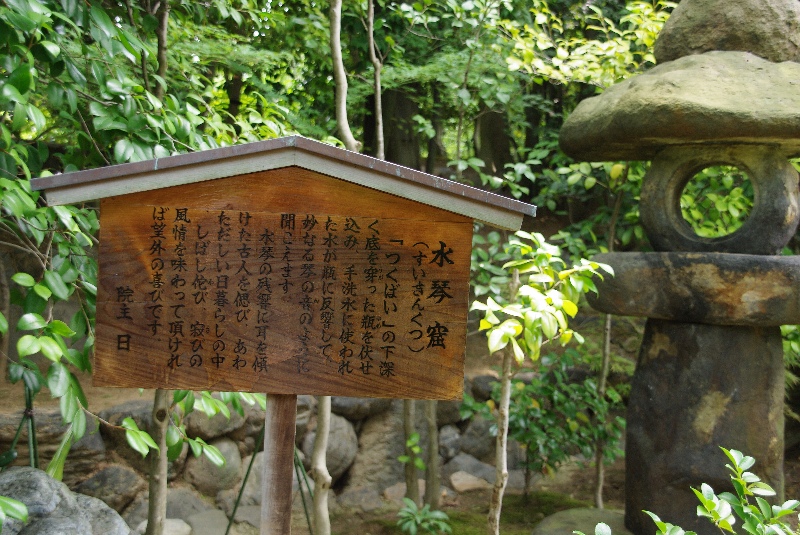 水琴窟
（すいきんくつ）
「つくばい」の下深
く底を穿った瓶を伏せ
込み、手洗水に使われ
た水が瓶に反響して、
妙なる琴の音のように
聞こえます
水琴の残響に耳を傾
けた古人を偲び、あわ
ただしい日暮らしの中
しばし侘び、寂びの
風情を味わって頂けれ
ば望外の喜びです
院主 日